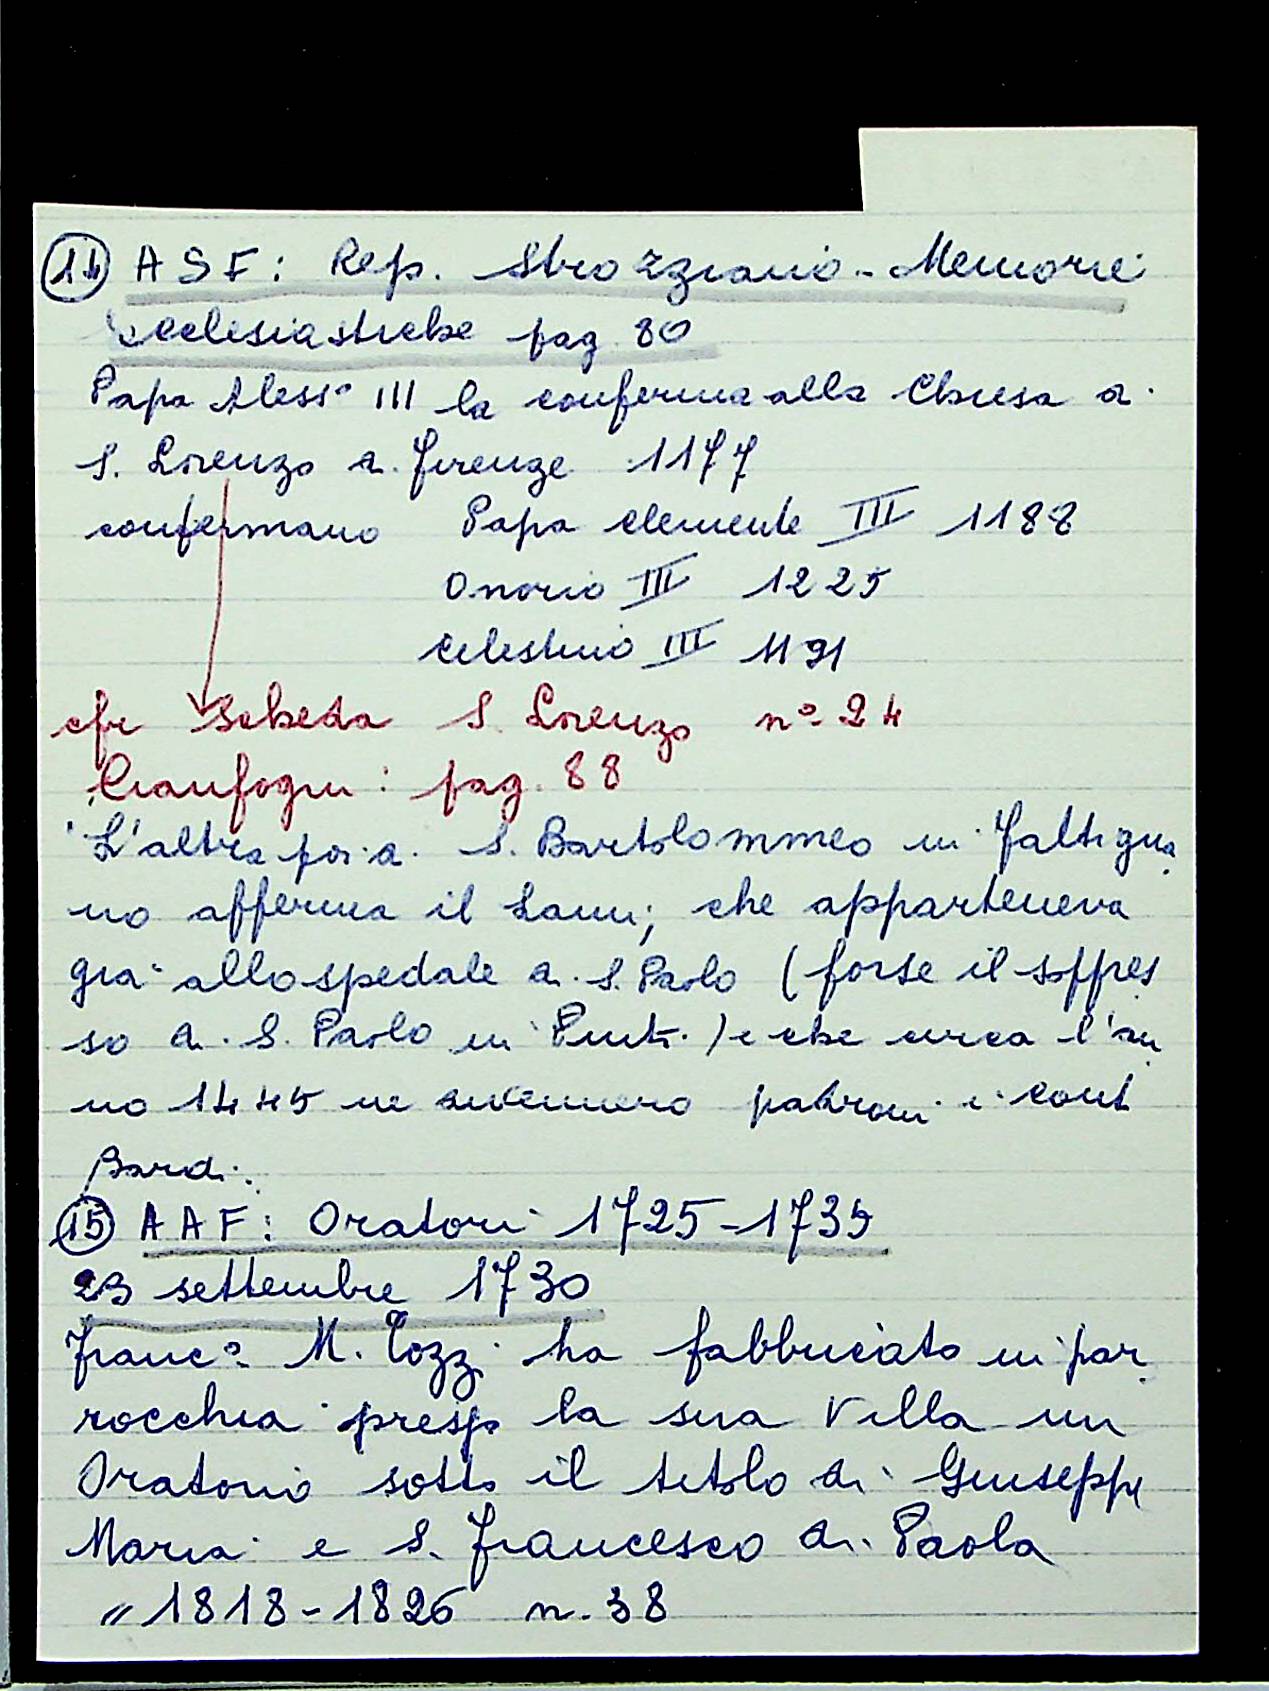 14 ASF: Rep. Strozziano - Memorie
ecclesiastiche pag 80
Papa Aless° III la conferma alla Chiesa di
S. Lorenzo di Firenze 1177
confermano Papa Clemente III 1188
Onorio III 1225
Celestino III 1191
cfr Scheda S. Lorenzo n° 24
Cianfogni: pag. 88
"L'altra poi di S. Bartolommeo in Faltigna
no afferma il Lami, che apparteneva
già allo spedale di S. Paolo (forse il soppres
so di S. Paolo in Pinti) e che circa l'an
no 1445 ne divennero padroni i Conti
Bardi.
15 AAF: Oratori 1725-1735
23 settembre 1730
Franc° M. Tozzi ha fabbricato in par
rocchia presso la sua Villa un
Oratorio sotto il titolo di Giuseppe
Maria e S. Francesco di Paola
" 1818-1826 n. 38